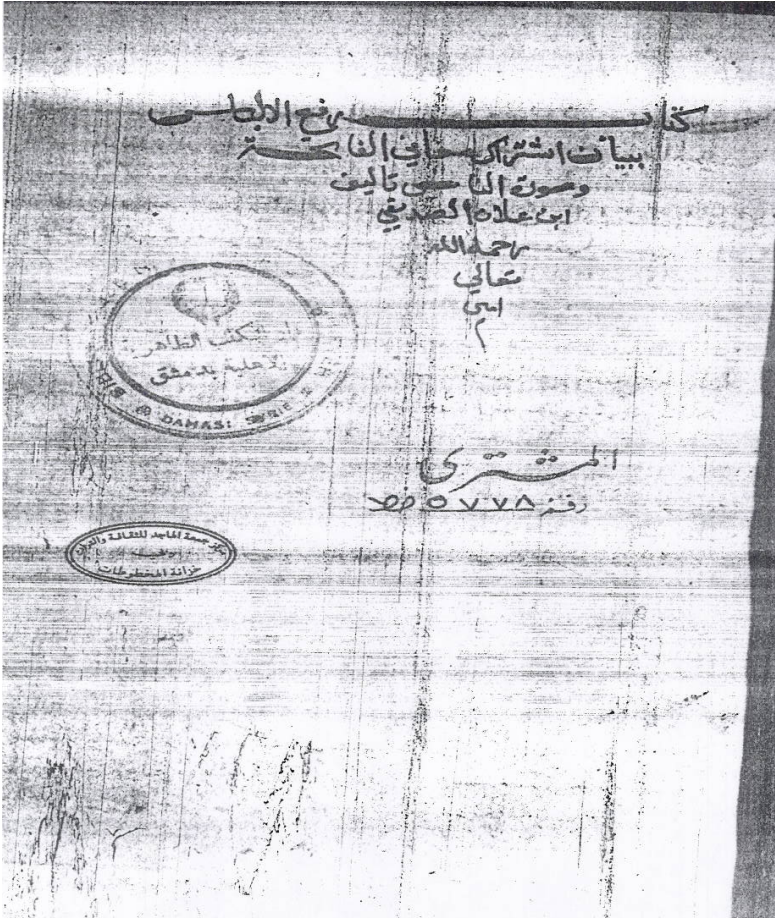 كتاب رفع الالباس
ببيان اشتراك معاني الفاتحة
وسورة الناس تاليف
ابن علان الصديقي
رحمه الله
تعالى
امين
م
دار الكتب الظاهرية
الاهلية بدمشق
DAMAS: SYRIE
المشترى
رقم ٥٧٧٨
مركز جمعة الماجد للثقافة والتراث
خزانة المخطوطات